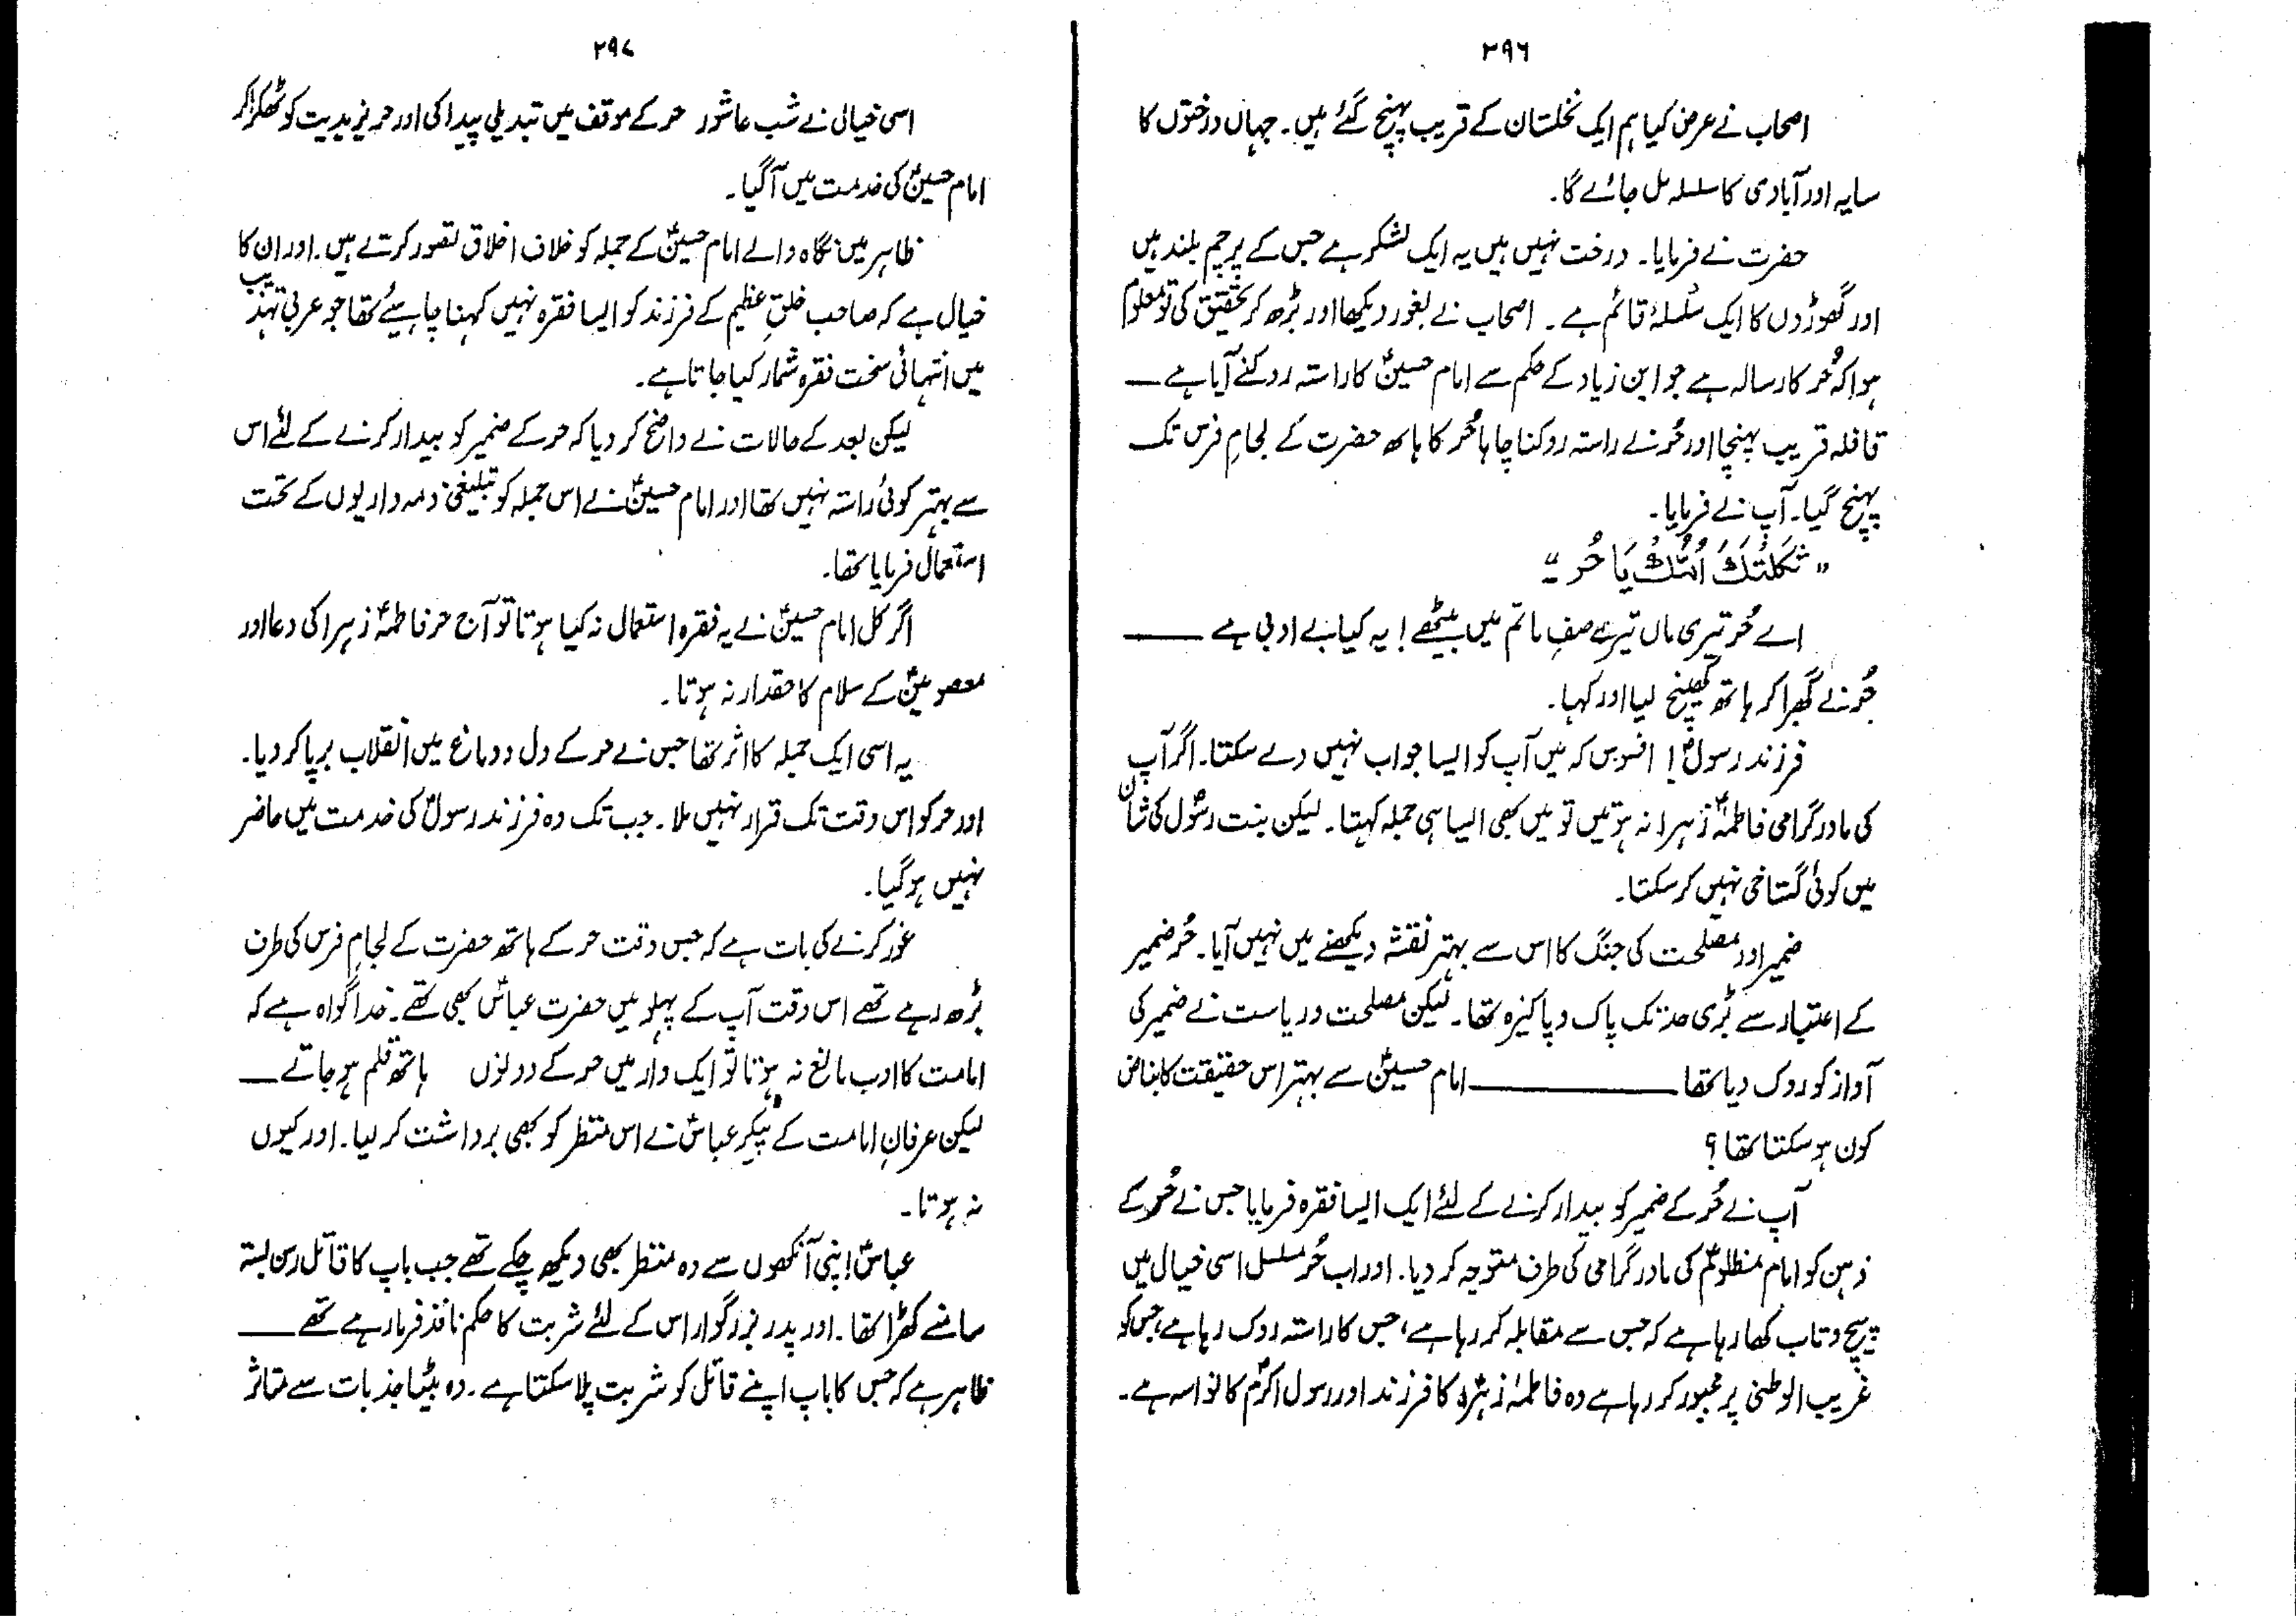 ۲۹۶
اصحاب نے عرض کیا ہم ایک نخلستان کے قریب پہنچ گئے ہیں۔ جہاں درختوں کا
سایہ اور آبادی کا سلسلہ مل جائے گا۔
حضرت نے فرمایا۔ درخت نہیں ہیں یہ ایک لشکر ہے جس کے پرچم بلند ہیں
اور گھوڑوں کا ایک سلسلہ قائم ہے۔ اصحاب نے بغور دیکھا اور بڑھ کر تحقیق کی تو معلوم
ہوا کہ حُر کا رسالہ ہے جو ابن زیاد کے حکم سے امام حسینؑ کا راستہ روکنے آیا ہے ــــ
قافلہ قریب پہنچا اور حُر نے راستہ روکنا چاہا حُر کا ہاتھ حضرت کے لجامِ فرس تک
پہنچ گیا۔ آپ نے فرمایا۔
"ثَکَلَتْکَ اُمُّکَ یَا حُر"۔
اے حُر تیری ماں تیرے صفِ ماتم میں بیٹھے! یہ کیا بے ادبی ہے ــــــ
حُر نے گھبرا کر ہاتھ کھینچ لیا اور کہا۔
فرزند رسولؐ! افسوس کہ میں آپ کو ایسا جواب نہیں دے سکتا۔ اگر آپ
کی مادر گرامی فاطمہؑ زہرا نہ ہوتیں تو میں بھی ایسا ہی جملہ کہتا۔ لیکن بنت رسولؐ کی شان
میں کوئی گستاخی نہیں کر سکتا۔
ضمیر اور مصلحت کی جنگ کا اس سے بہتر نقشہ دیکھنے میں نہیں آیا۔ حُر ضمیر
کے اعتبار سے بڑی حد تک پاک و پاکیزہ تھا۔ لیکن مصلحت و ریاست نے ضمیر کی
آواز کو روک دیا تھا ــــــــــــ امام حسینؑ سے بہتر اس حقیقت کا نباض
کون ہو سکتا تھا؟
آپ نے حُر کے ضمیر کو بیدار کرنے کے لئے ایک ایسا فقرہ فرمایا جس نے حُر کے
ذہن کو امام مظلومؑ کی مادر گرامی کی طرف متوجہ کر دیا۔ اور اب حُر مسلسل اسی خیال میں
پیچ و تاب کھا رہا ہے کہ جس سے مقابلہ کر رہا ہے، جس کا راستہ روک رہا ہے، جس کو
غریب الوطنی پر مجبور کر رہا ہے وہ فاطمہؑ زہرؑا کا فرزند اور رسول اکرمؐ کا نواسہ ہے۔
۲۹۷
اسی خیال نے شب عاشور حر کے موقف میں تبدیلی پیدا کی اور حر یزیدیت کو ٹھکرا کر
امام حسینؑ کی خدمت میں آگیا۔
ظاہر میں نگاہ والے امام حسینؑ کے جملہ کو خلاف اخلاق تصور کرتے ہیں۔ اور ان کا
خیال ہے کہ صاحب خلقِ عظیم کے فرزند کو ایسا فقرہ نہیں کہنا چاہیئے تھا جو عربی تہذیب
میں انتہائی سخت فقرہ شمار کیا جاتا ہے۔
لیکن بعد کے حالات نے واضح کر دیا کہ حر کے ضمیر کو بیدار کرنے کے لئے اس
سے بہتر کوئی راستہ نہیں تھا اور امام حسینؑ نے اس جملہ کو تبلیغی ذمہ داریوں کے تحت
استعمال فرمایا تھا۔
اگر کل امام حسینؑ نے یہ فقرہ استعمال نہ کیا ہوتا تو آج حر فاطمہؑ زہرا کی دعا اور
معصومینؑ کے سلام کا حقدار نہ ہوتا۔
یہ اسی ایک جملہ کا اثر تھا جس نے حر کے دل و دماغ میں انقلاب برپا کر دیا۔
اور حر کو اس وقت تک قرار نہیں ملا۔ جب تک وہ فرزند رسولؐ کی خدمت میں حاضر
نہیں ہو گیا۔
غور کرنے کی بات ہے کہ جس وقت حر کے ہاتھ حضرت کے لجامِ فرس کی طرف
بڑھ رہے تھے اس وقت آپ کے پہلو میں حضرت عباسؑ بھی تھے۔ خدا گواہ ہے کہ
امامت کا ادب مانع نہ ہوتا تو ایک وار میں حر کے دونوں ہاتھ قلم ہو جاتے ــــ
لیکن عرفانِ امامت کے پیکر عباسؑ نے اس منظر کو بھی برداشت کر لیا۔ اور کیوں
نہ ہوتا۔
عباسؑ اپنی آنکھوں سے وہ منظر بھی دیکھ چکے تھے جب باپ کا قاتل رسن بستہ
سامنے کھڑا تھا۔ اور پدر بزرگوار اس کے لئے شربت کا حکم نافذ فرما رہے تھے ــــ
ظاہر ہے کہ جس کا باپ اپنے قاتل کو شربت پلا سکتا ہے۔ وہ بیٹا جذبات سے متاثر